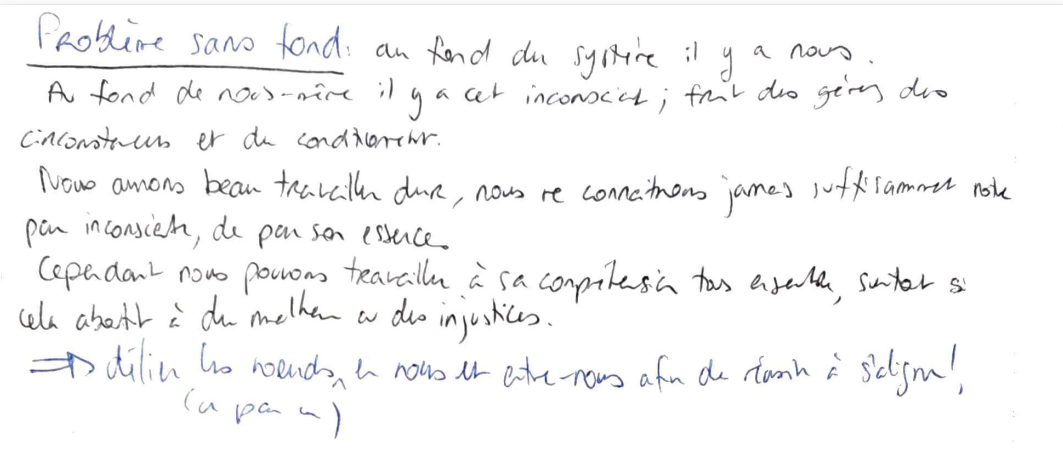 Problème sans fond : au fond du système il y a nous.
Au fond de nous-même il y a cet inconscient ; fruit des gènes, des
circonstances et du conditionnement.
Nous aurons beau travailler dur, nous ne connaîtrons jamais suffisamment notre
part inconsciente, de par son essence.
Cependant nous pouvons travailler à sa compréhension tous ensemble, surtout si
cela aboutit à du malheur ou des injustices.
⇒ délier les noeuds, en nous et entre-nous afin de réussir à s'aligner !
(un par un)